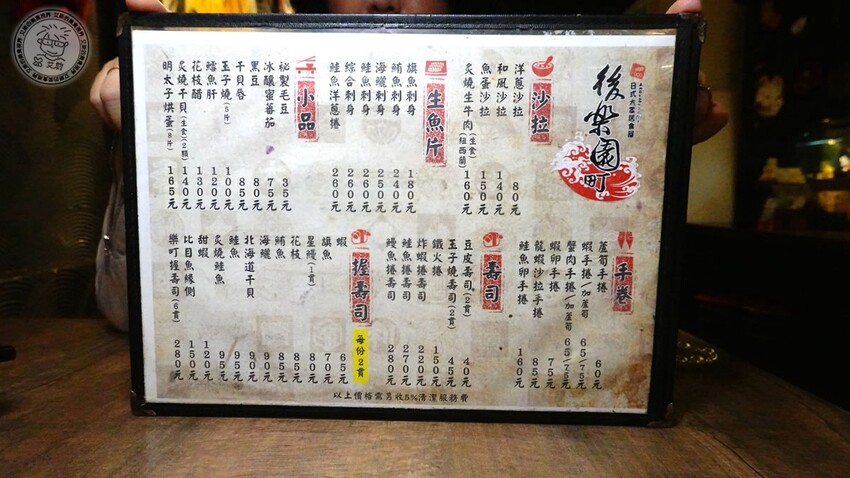 後樂園町
日式大眾居食屋
沙拉
洋蔥沙拉 80元
和風沙拉 140元
魚蛋沙拉 150元
炙燒生牛肉(生食)(紐西蘭) 160元
生魚片
旗魚刺身 180元
鮪魚刺身 240元
海鱺刺身 250元
鮭魚刺身 260元
綜合刺身 260元
鮭魚洋蔥捲 260元
小品
秘製毛豆 35元
冰釀蜜番茄 75元
黑豆 80元
干貝唇 85元
玉子燒(5片) 100元
鱈魚肝 120元
花枝醋 130元
炙燒干貝(生食)(2顆) 140元
明太子烘蛋(8片) 165元
手卷
蘆筍手捲 60元
蝦手捲/加蘆筍 65/75元
蟹肉手捲/加蘆筍 65/75元
蝦卵手捲 75元
龍蝦沙拉手捲 85元
鮭魚卵手捲 160元
壽司
豆皮壽司(2貫) 40元
玉子燒壽司(2貫) 45元
鐵火捲 150元
炸蝦捲壽司 220元
鮭魚捲壽司 270元
鰻魚捲壽司 280元
握壽司
每份2貫
蝦 65元
旗魚 70元
星鰻(1貫) 80元
花枝 85元
鮪魚 85元
海鱺 90元
北海道干貝 90元
鮭魚 95元
炙燒鮭魚 95元
甜蝦 120元
比目魚緣側 150元
樂町握壽司(6貫) 280元
以上價格需另收5%清潔服務費